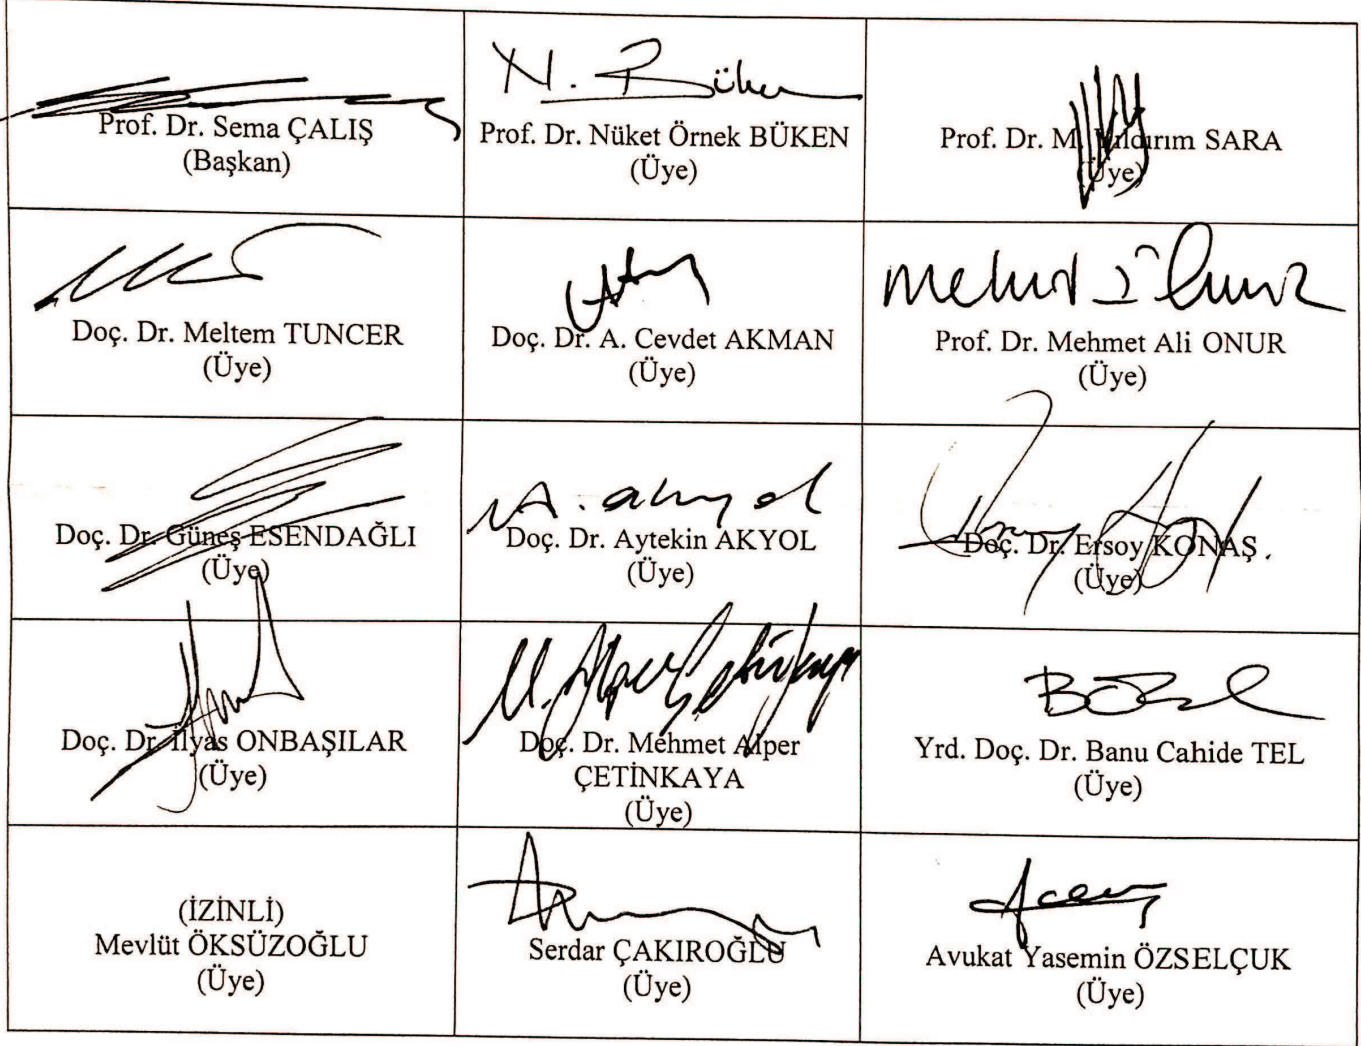 N. Büken
Prof. Dr. Sema ÇALIŞ
(Başkan)
Prof. Dr. Nüket Örnek BÜKEN
(Üye)
Prof. Dr. M. Yıldırım SARA
(Üye)
Doç. Dr. Meltem TUNCER
(Üye)
Doç. Dr. A. Cevdet AKMAN
(Üye)
Prof. Dr. Mehmet Ali ONUR
(Üye)
Doç. Dr. Güneş ESENDAĞLI
(Üye)
A. Akyol
Doç. Dr. Aytekin AKYOL
(Üye)
Doç. Dr. Ersoy KONAŞ
(Üye)
Doç. Dr. İlyas ONBAŞILAR
(Üye)
M. Alper Çetinkaya
Doç. Dr. Mehmet Alper
ÇETİNKAYA
(Üye)
Yrd. Doç. Dr. Banu Cahide TEL
(Üye)
(İZİNLİ)
Mevlüt ÖKSÜZOĞLU
(Üye)
Serdar ÇAKIROĞLU
(Üye)
Avukat Yasemin ÖZSELÇUK
(Üye)